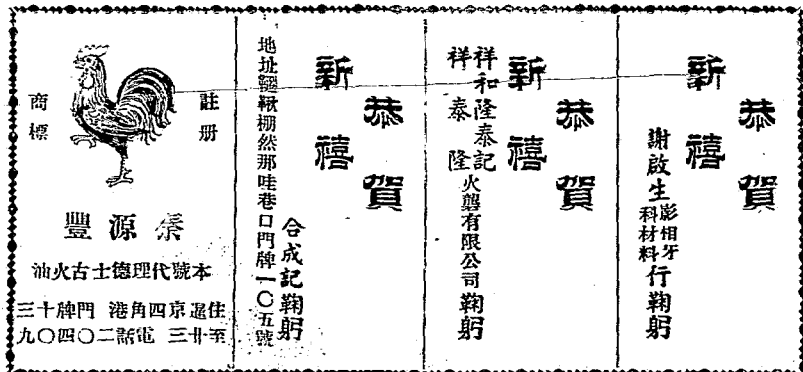 恭賀
新禧
謝啟生
影相牙
科材料
行鞠躬
恭賀
新禧
祥和隆泰記
祥泰隆
火礱有限公司鞠躬
恭賀
新禧
合成記鞠躬
地址韆鞦棚然那哇巷口門牌一〇五號
註册
商標
泰源豐
本號代理德士古火油
住暹京四角港 門牌十三
至廿三 電話二〇四〇九